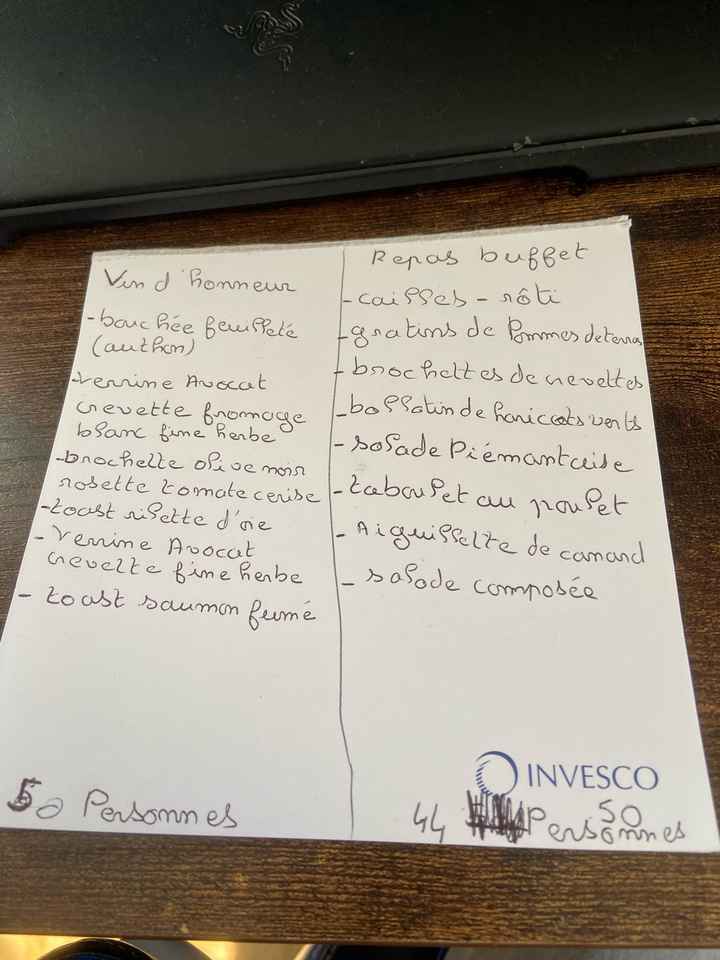 Vin d'honneur
- bouchée feuilleté
(authon)
- verrine Avocat
crevette fromage
blanc fine herbe
- brochette olive noir
rosette tomate cerise
- toast rillette d'oie
- Verrine Avocat
crevette fine herbe
- toast saumon fumé
50 Personnes
Repas buffet
- cailles - rôti
- gratins de Pommes de terres
- brochettes de crevettes
- ballotin de haricots verts
- salade Piémantaise
- taboulet au poulet
- Aiguillette de canard
- salade composée
INVESCO
44 50
Personnes